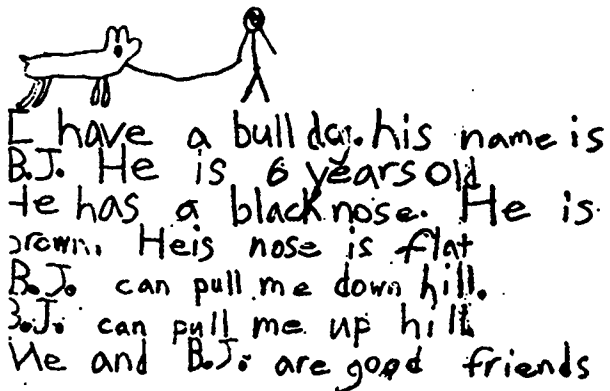 I have a bull dog. his name is
B.J. He is 6 years old
He has a black nose. He is
brown. Heis nose is flat
B.J. can pull me down hill.
B.J. can pull me up hill.
Me and B.J. are good friends